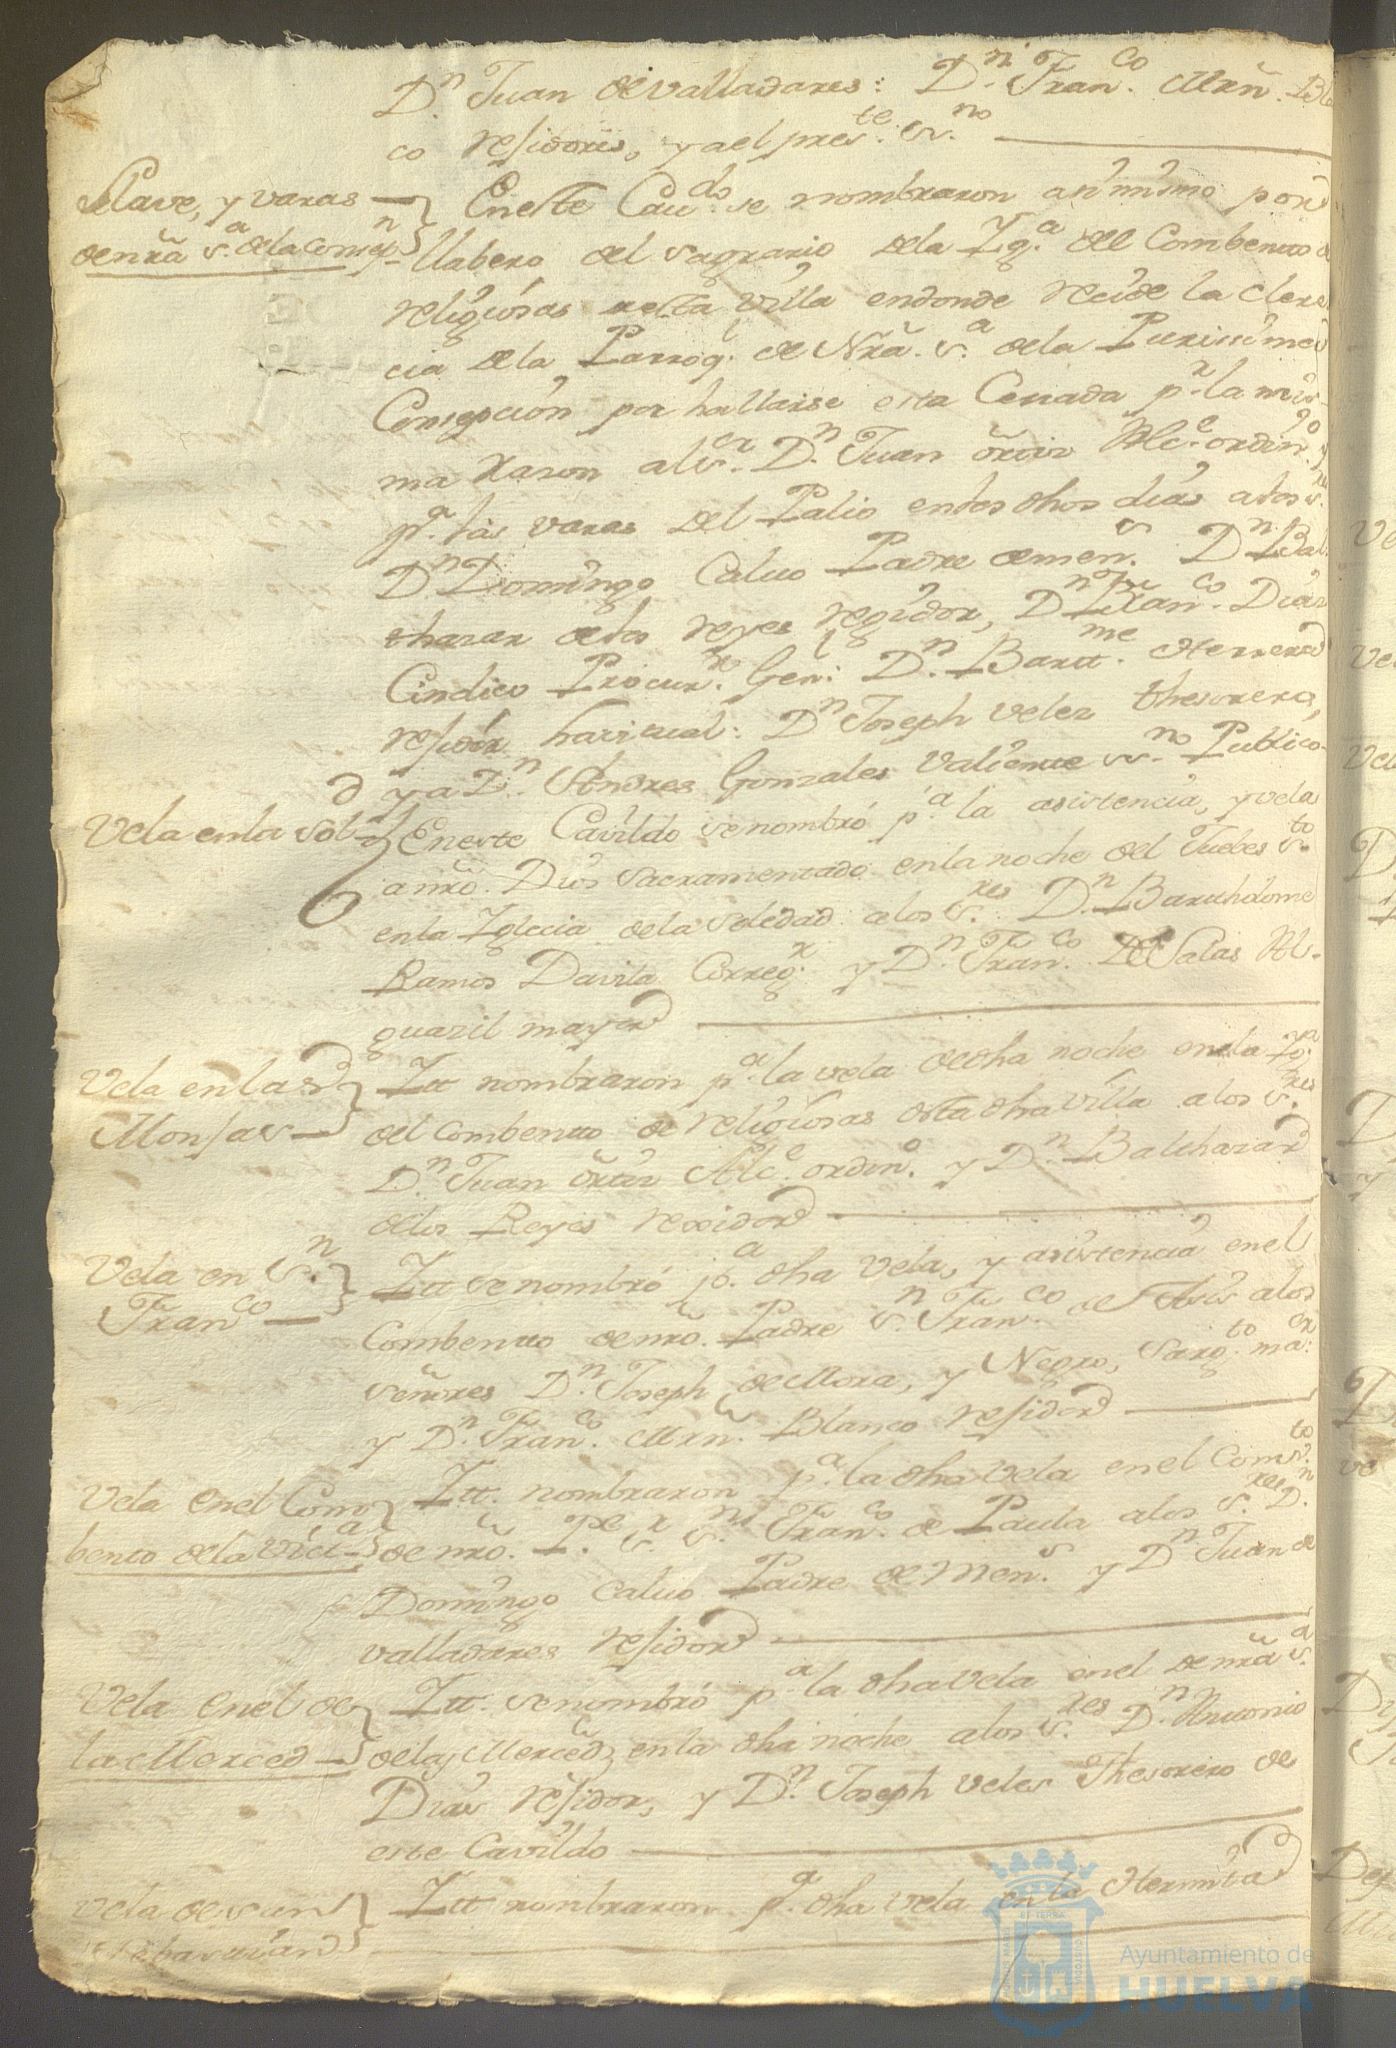 Dn. Juan de valladares: Dn. Franco. Mrñ. Bla
co residores, y a el preste. Ssno.
Llave, y varas
de nrã sa. de la Consepn
En este Caudo. se nombraron asimismo por
llabero del sagrario dela Yga. del Combento de
religiosas desta villa endonde recide la clere
cia de la Parroq. de Nrã. sa. de la Purissima
Consepcion por hallarse esta Cerrada pr. la mis-
ma Rason al sr. Dn. Juan õrtiz Alce. ordino. y
pa. las varas del Palio en dos dhos dias a los sres.
Dn Domingo Calvo Padre de mens. Dn Bal
thazar de los reyes regidor, Dn Franco. Dias
Cindico Procurr. Gen: Dn. Bartme. Herrera
residor havitual: Dn Joseph velez thesorero,
y a Dn. Andres Gonzales Valiente ssno. Publico
Vela en la Sold
En este Cavildo se nombró pa. la asistencia, y vela
a nrõ. Dios Sacramentado en la noche del Juebes sto.
en la Yglecia de la Soledad a los sres. Dn. Barthdome
Ramos Davila Corregr. y Dn. Franco. De Salas Al-
guazil mayor
Vela en las
Monjas
Ytt nombraron pa. la vela de dha noche en la Yga.
del combento de religiosas desta dha villa a los sres.
Dn. Juan õrtiz Alce. ordino. y Dn. Balthazar
de los Reyes rexidor
Vela en Sn.
Franco
Ytt se nombró pa. dha vela, y asistencia en el
Combento de nrõ. Padre sn Franco. de Asis a los
señores Dn. Joseph de Mora, y Negro, Sargto. mar:
y Dn. Franco. Mrñ. Blanco residor
Vela en el Com
bento de la Victa
Ytt. nombraron pa. la dha vela en el Combto.
de nrõ. Pe. sr. sn. Franco. de Paula a los sres. Dn.
Domingo Calvo Padre de Mens. y Dn Juan de
valladares residor
Vela en el de
la Merced
Ytt. se nombró pa. la dha vela en el de nrã sa.
de las Mercedes, en la dha noche a los sres Dn. Antonio
Dias residor, y Dn. Joseph veles Thesorero de
este Cavildo
Vela de san
Sebastian
Ytt nombraron pa. dha vela en la Hermita
Ayuntamiento de
HUELVA